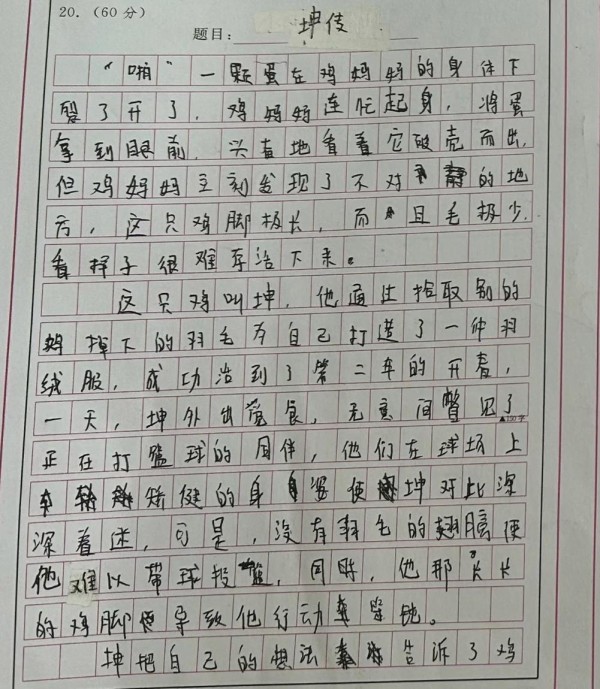 20.（60分）
题目：坤传
“啪”一颗蛋在鸡妈妈的身体下
裂了开了，鸡妈妈连忙起身，将蛋
拿到眼前，兴直地看着它破壳而出，
但鸡妈妈立刻发现了不对的地
方，这只鸡脚极长，而且毛极少，
看样子很难存活下来。
这只鸡叫坤，他通过拾取别的
鸡掉下的羽毛为自己打造了一件羽
绒服，成功活到了第二年的开春，
一天，坤外出觅食，无意间瞥见了
▲150字
正在打篮球的同伴，他们在球场上
矫健的身姿使坤对此深
深着迷，可是，没有羽毛的翅膀使
他难以带球投篮，同时，他那长长
的鸡脚导致他行动笨钝。
坤把自己的想法告诉了鸡